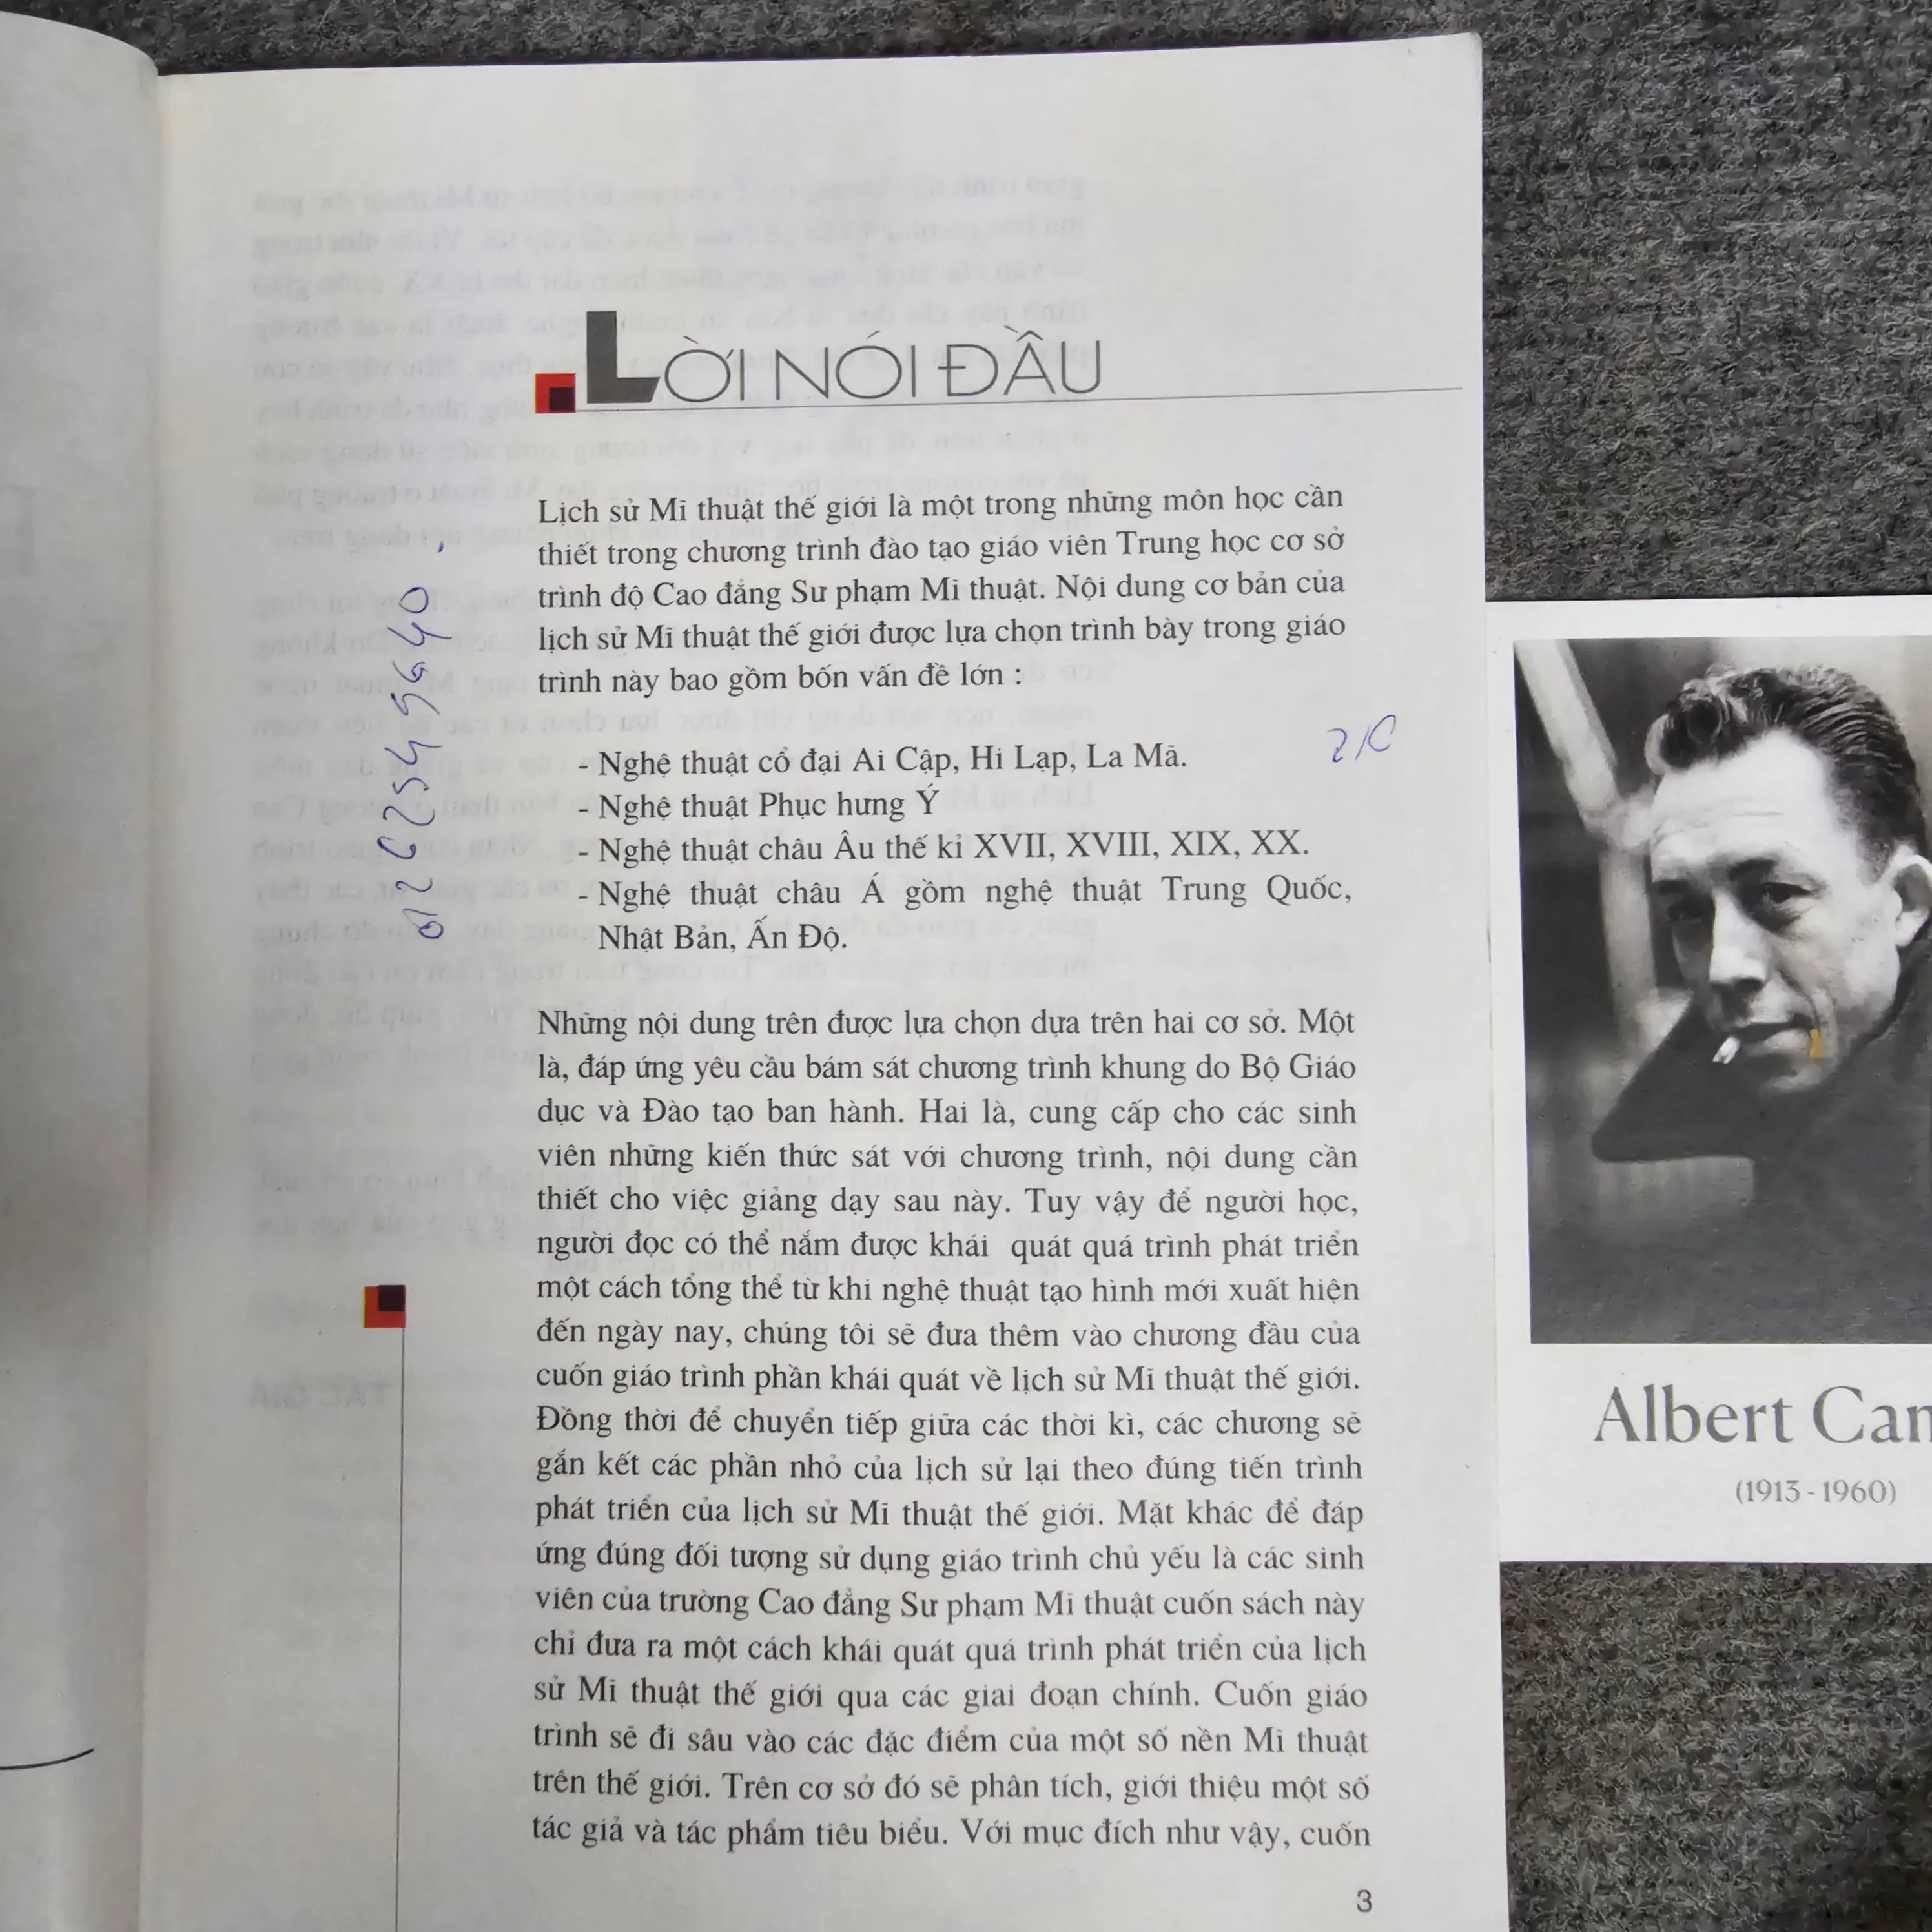 LỜI NÓI ĐẦU
Lịch sử Mĩ thuật thế giới là một trong những môn học cần
thiết trong chương trình đào tạo giáo viên Trung học cơ sở
trình độ Cao đẳng Sư phạm Mĩ thuật. Nội dung cơ bản của
lịch sử Mĩ thuật thế giới được lựa chọn trình bày trong giáo
trình này bao gồm bốn vấn đề lớn :
- Nghệ thuật cổ đại Ai Cập, Hi Lạp, La Mã.
- Nghệ thuật Phục hưng Ý
- Nghệ thuật châu Âu thế kỉ XVII, XVIII, XIX, XX.
- Nghệ thuật châu Á gồm nghệ thuật Trung Quốc,
Nhật Bản, Ấn Độ.
Những nội dung trên được lựa chọn dựa trên hai cơ sở. Một
là, đáp ứng yêu cầu bám sát chương trình khung do Bộ Giáo
dục và Đào tạo ban hành. Hai là, cung cấp cho các sinh
viên những kiến thức sát với chương trình, nội dung cần
thiết cho việc giảng dạy sau này. Tuy vậy để người học,
người đọc có thể nắm được khái quát quá trình phát triển
một cách tổng thể từ khi nghệ thuật tạo hình mới xuất hiện
đến ngày nay, chúng tôi sẽ đưa thêm vào chương đầu của
cuốn giáo trình phần khái quát về lịch sử Mĩ thuật thế giới.
Đồng thời để chuyển tiếp giữa các thời kì, các chương sẽ
gắn kết các phần nhỏ của lịch sử lại theo đúng tiến trình
phát triển của lịch sử Mĩ thuật thế giới. Mặt khác để đáp
ứng đúng đối tượng sử dụng giáo trình chủ yếu là các sinh
viên của trường Cao đẳng Sư phạm Mĩ thuật cuốn sách này
chỉ đưa ra một cách khái quát quá trình phát triển của lịch
sử Mĩ thuật thế giới qua các giai đoạn chính. Cuốn giáo
trình sẽ đi sâu vào các đặc điểm của một số nền Mĩ thuật
trên thế giới. Trên cơ sở đó sẽ phân tích, giới thiệu một số
tác giả và tác phẩm tiêu biểu. Với mục đích như vậy, cuốn
3
Albert
(1913 - 1960)